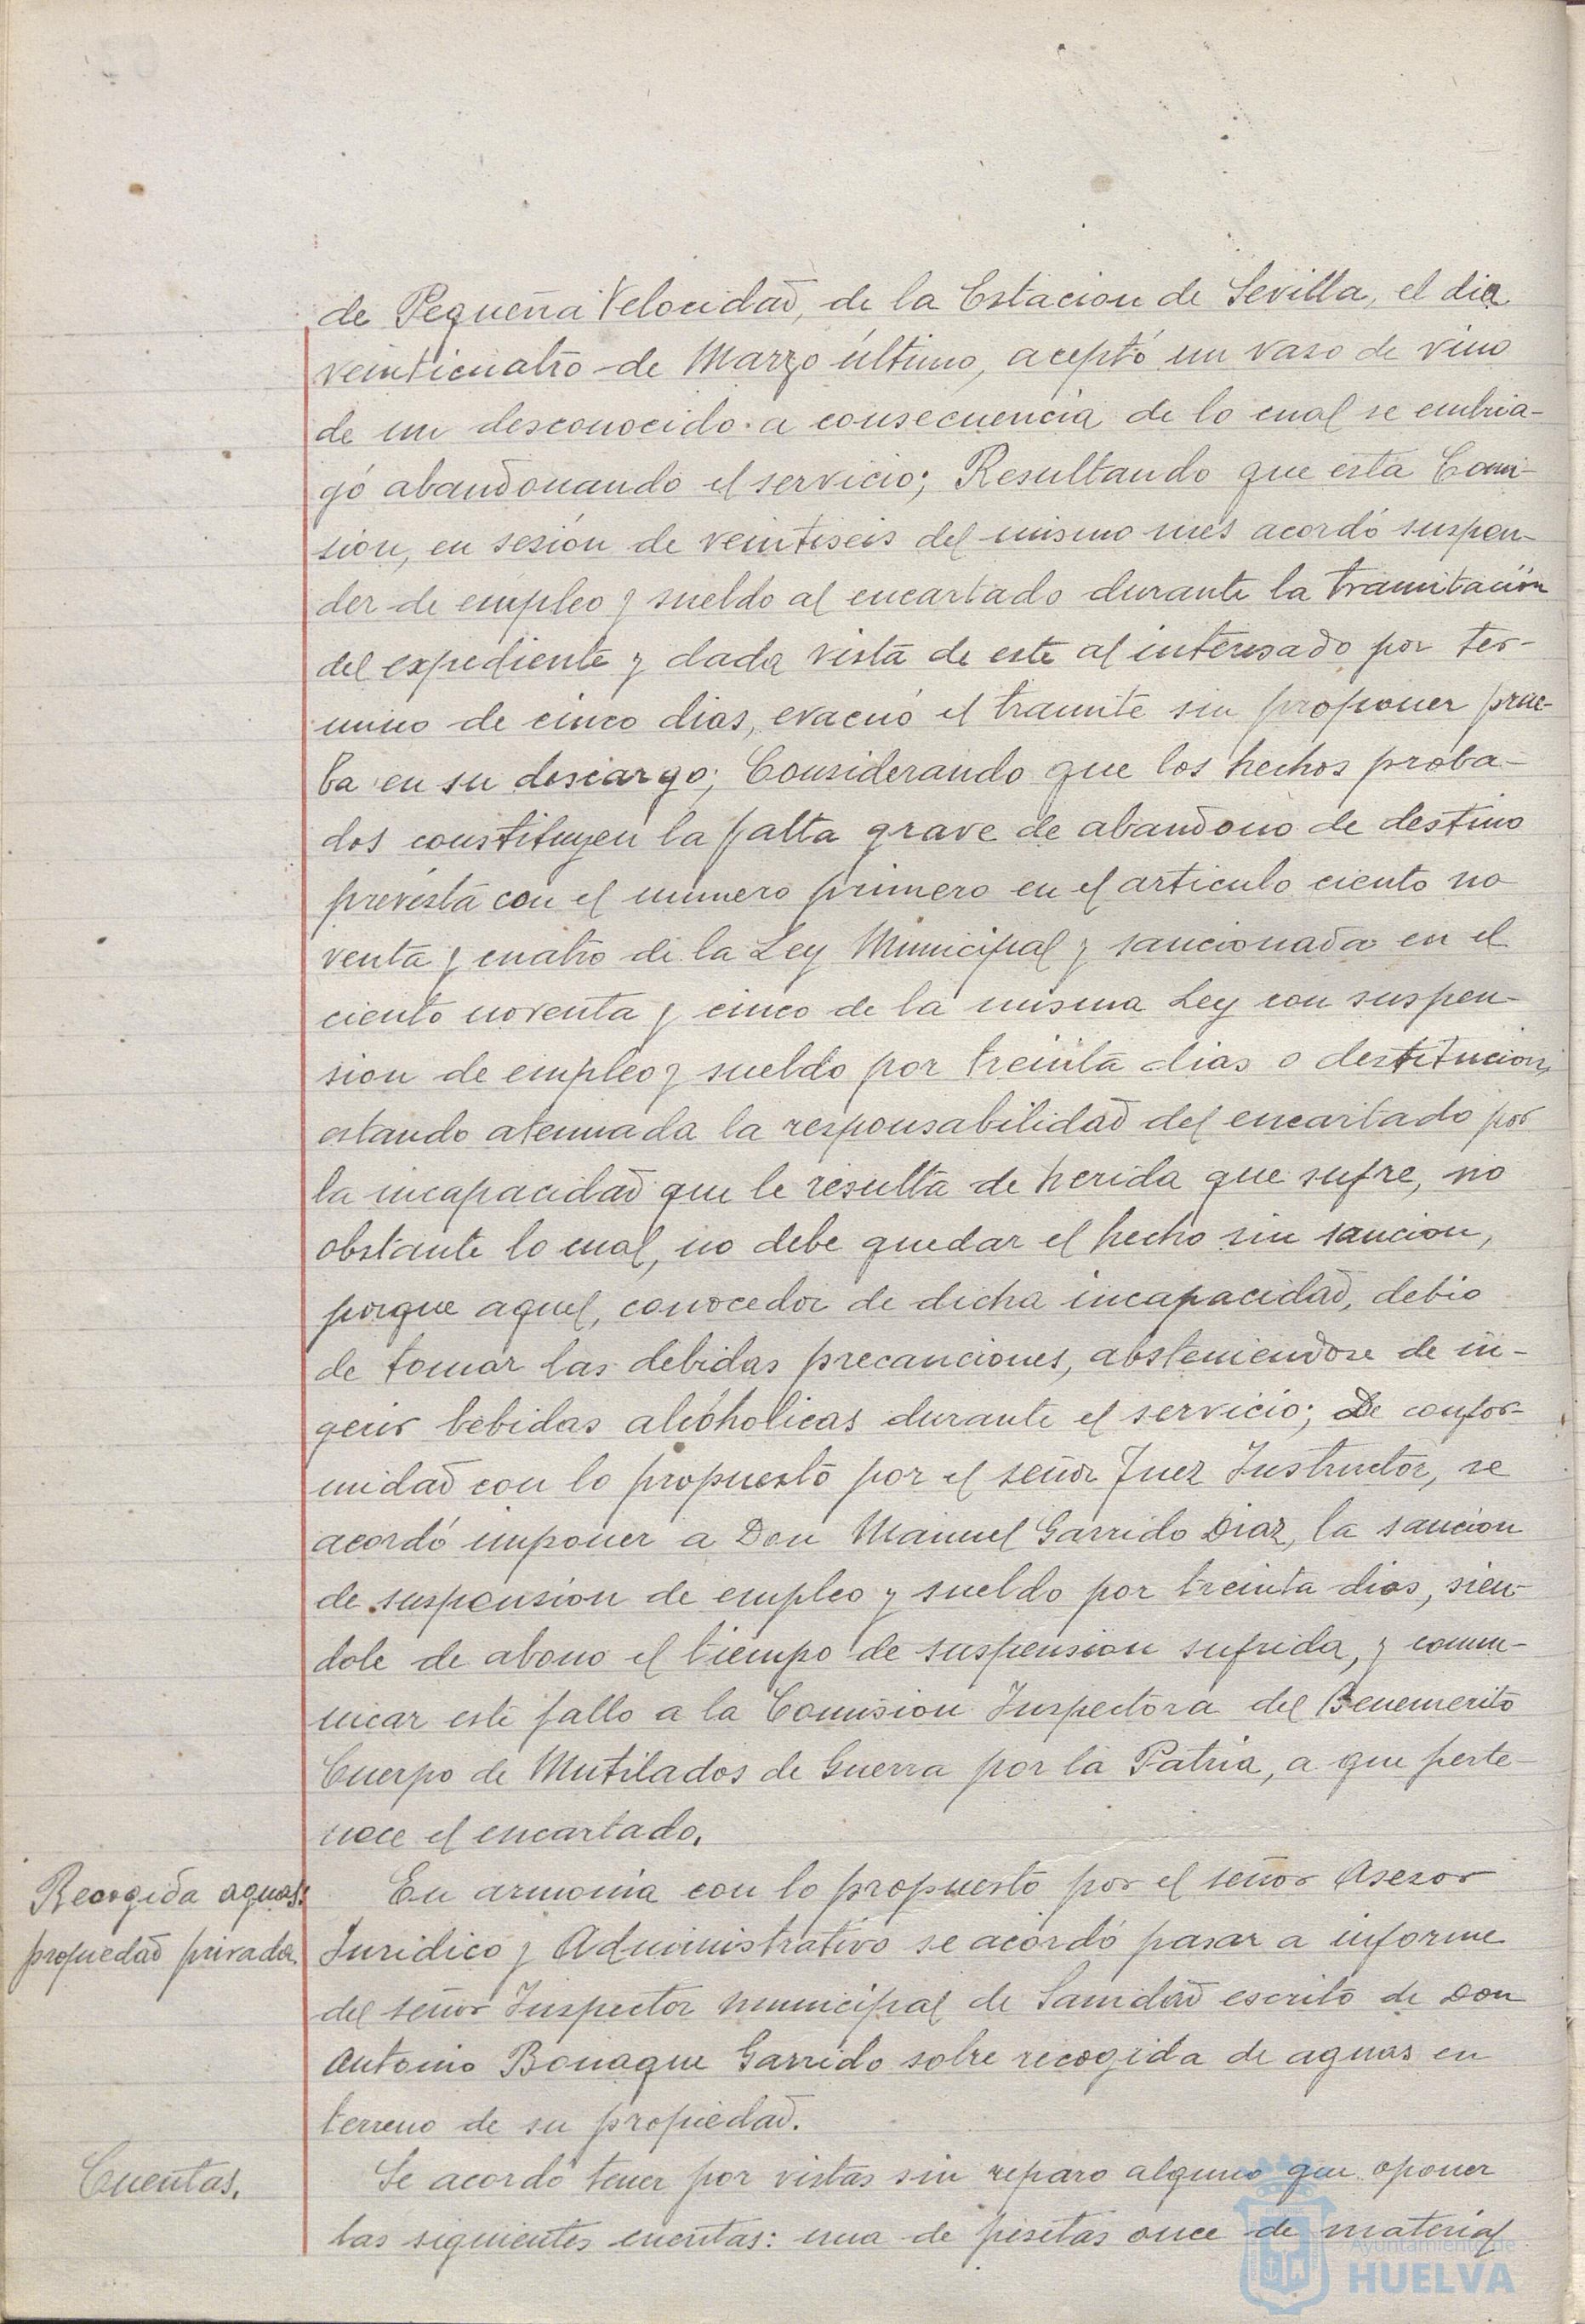 de Pequeña Velocidad, de la Estacion de Sevilla, el dia
veinticuatro de Marzo último, aceptó un vaso de vino
de un desconocido a consecuencia de lo cual se embria-
gó abandonando el servicio; Resultando que esta Comi-
sion, en sesión de veintiseis del mismo mes acordó suspen-
der de empleo y sueldo al encartado durante la tramitación
del expediente y dada vista de este al interesado por ter-
mino de cinco dias, evacuó el tramite sin proponer prue-
ba en su descargo; Considerando que los hechos proba-
dos constituyen la falta grave de abandono de destino
prevista con el numero primero en el articulo ciento no
venta y cuatro de la Ley Municipal y sancionada en el
ciento noventa y cinco de la misma Ley con suspen-
sion de empleo y sueldo por treinta dias o destitucion,
estando atenuada la responsabilidad del encartado por
la incapacidad que le resulta de herida que sufre, no
obstante lo cual, no debe quedar el hecho sin sancion,
porque aquel, conocedor de dicha incapacidad, debio
de tomar las debidas precauciones, absteniendose de in-
gerir bebidas alcóholicas durante el servicio; De confor-
midad con lo propuesto por el señor Juez Instructor, se
acordó imponer a Don Manuel Garrido Diaz, la sancion
de suspension de empleo y sueldo por treinta dias, sien-
dole de abono el tiempo de suspension sufrida, y comu-
nicar este fallo a la Comision Inspectora del Benemerito
Cuerpo de Mutilados de Guerra por la Patria, a que perte-
nece el encartado.
Recogida aguas:
propiedad privada.
En armonia con lo propuesto por el señor Asesor
Juridico y Administrativo se acordó pasar a informe
del señor Inspector municipal de Sanidad escrito de Don
Antonio Bonaque Garrido sobre recogida de aguas en
terreno de su propiedad.
Cuentas.
Se acordó tener por vistas sin reparo alguno que oponer
las siguientes cuentas: una de pesetas once de material
Ayuntamiento de
HUELVA